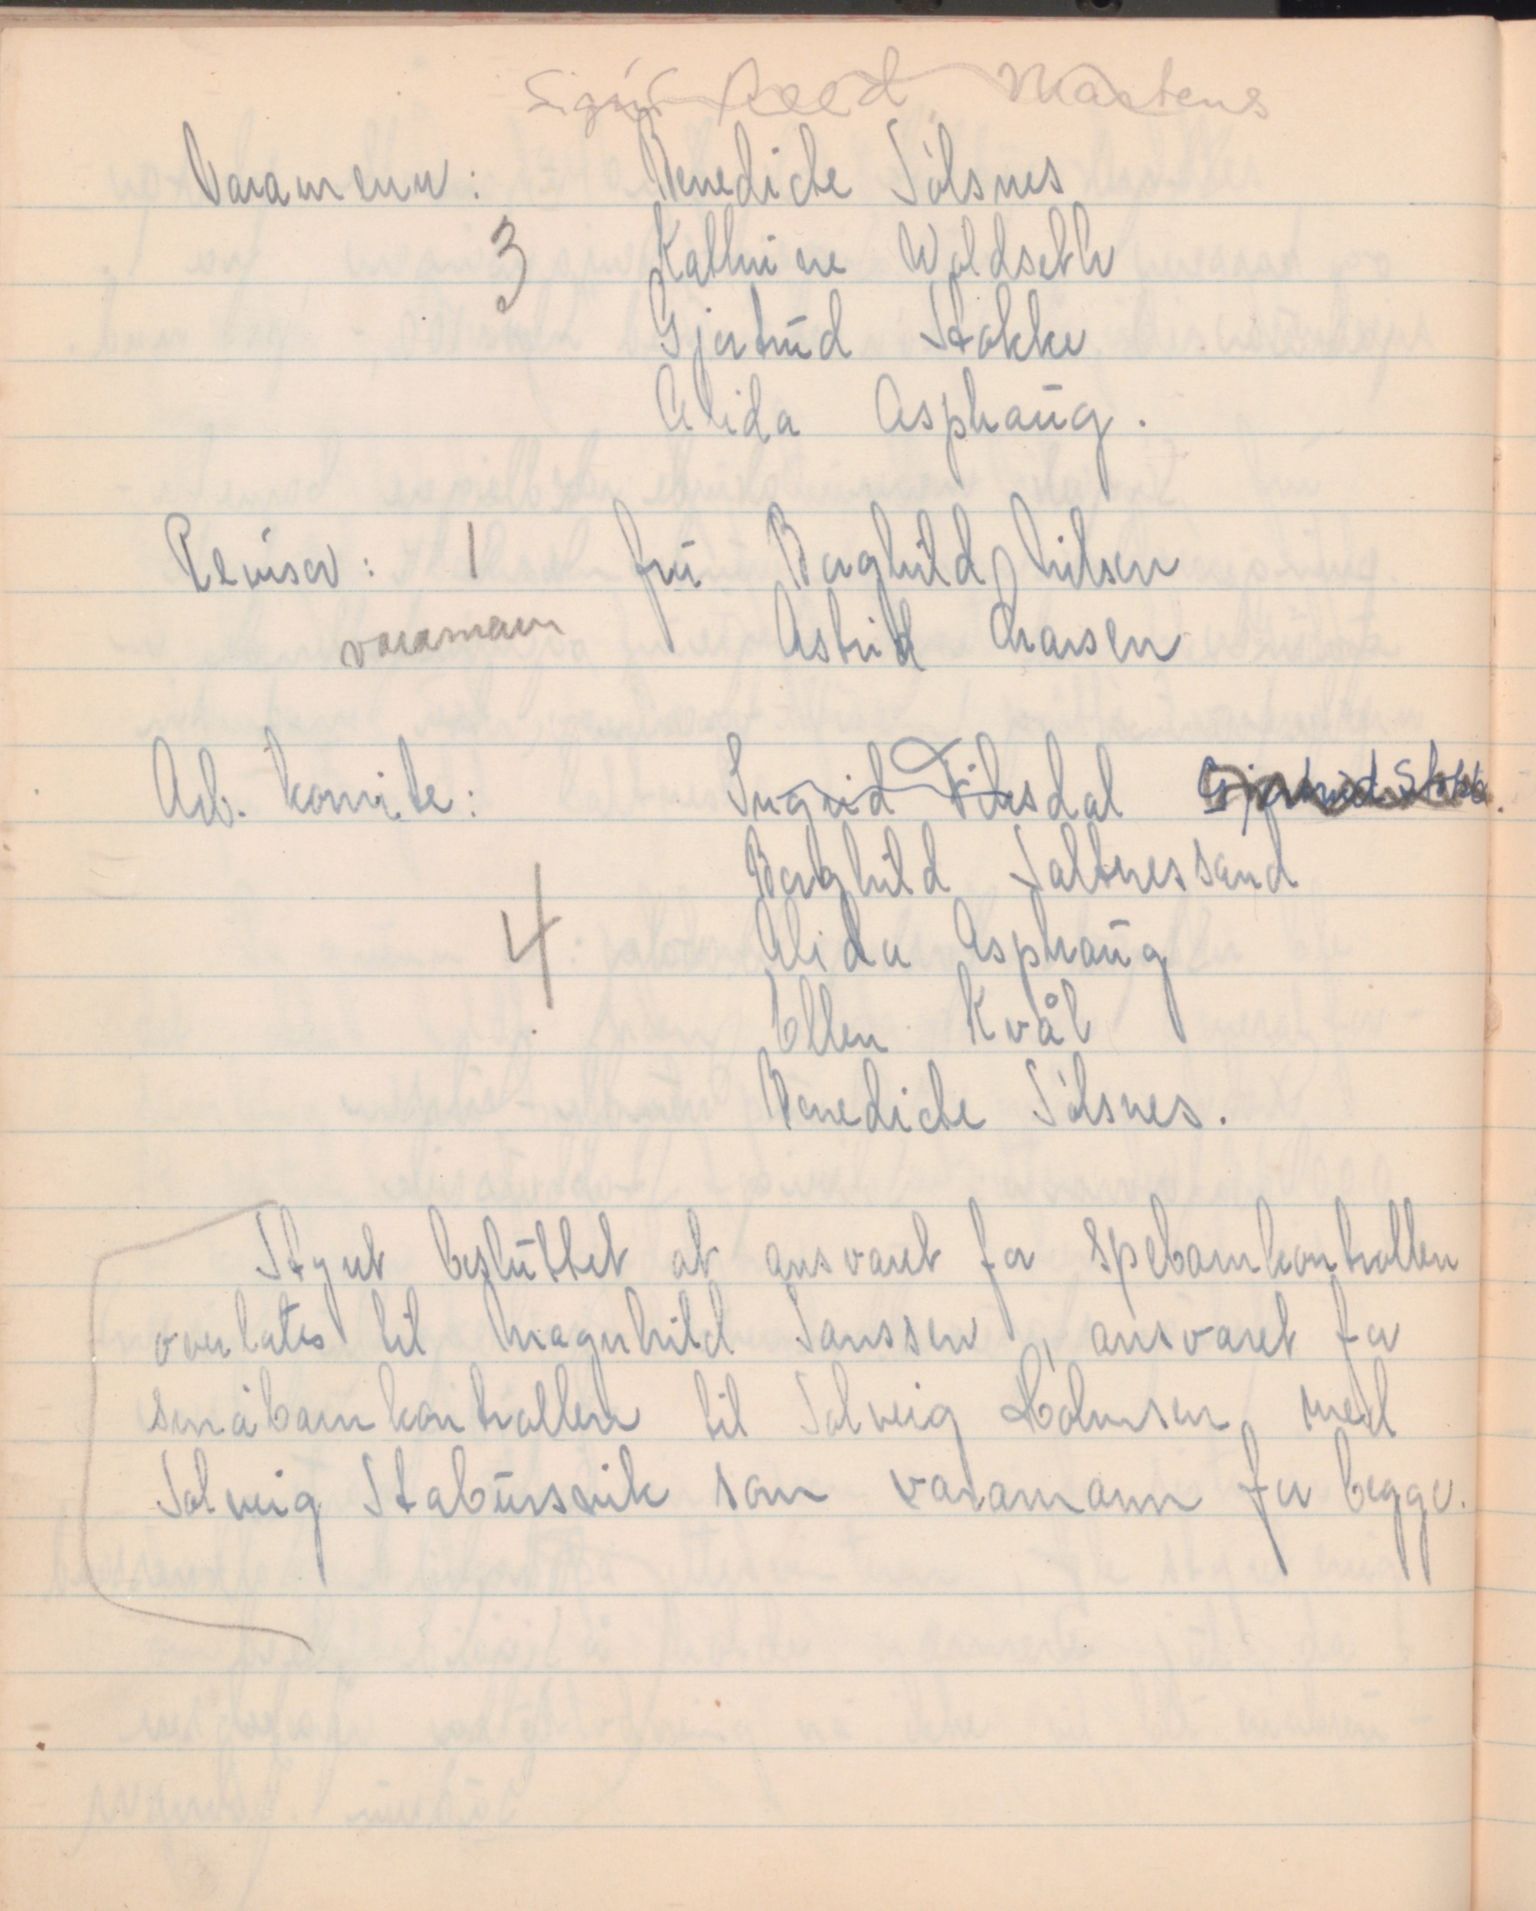 Martens
Varamenn: Benedicte Sólsnes
3 Kathrine Woldseth
Gjertrud Stokke
Alida Asphaug.
Revisor: 1 fru Borghild Nilsen
varamann Astrid Larsen
Arb. komite: Ingrid Filesdal Gjertrud Stokke.
Borghild Saltnessand
4 Alida Asphaug
Ellen Kvål
Benedicte Sólsnes.
Styret besluttet at ansvaret for spebarnkontrollen
overlates til Magnhild Janssen, ansvaret for
småbarnkontrollen til Solveig med
Solveig Stabursvik som varamann for begge.